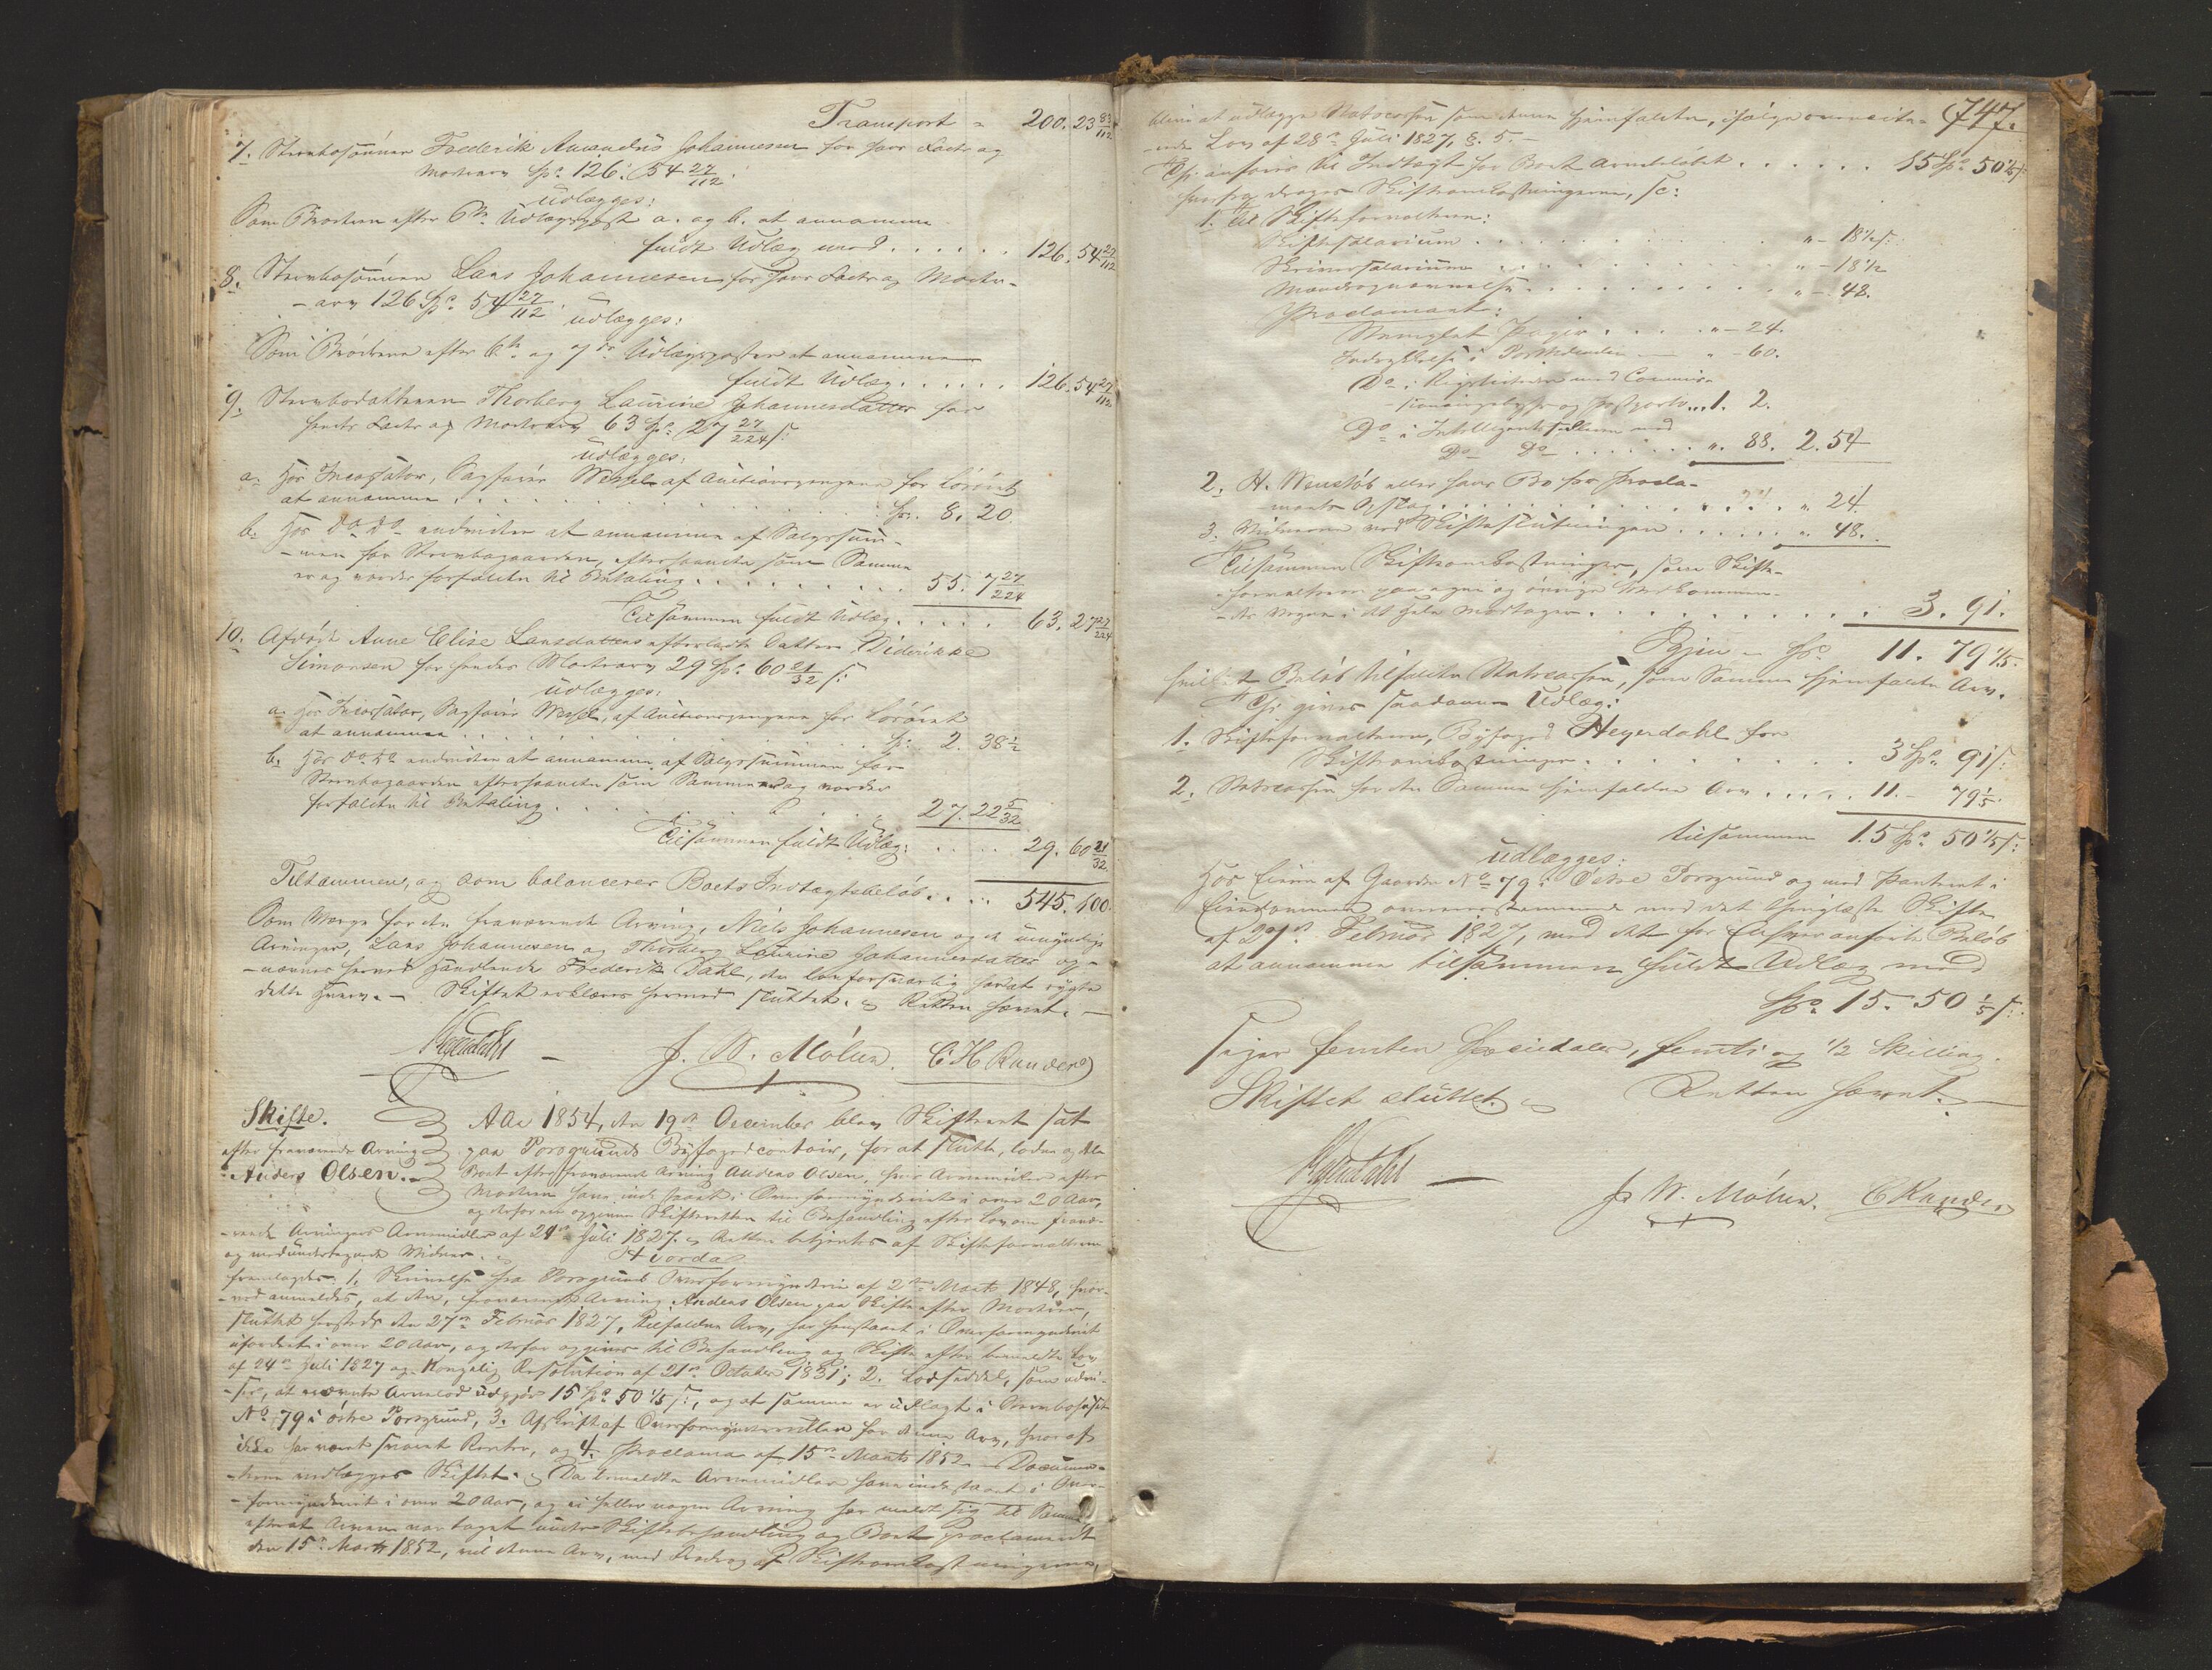 Transport - 200. 23 83/112
7. Sterbosønnen Frederik Amandus Johannesen for hans Fædre og
Mødrearv Spd. 126. 54 27/112.
udlægges:
Som Broderen efter 6te Udlægspost a. og b. at annamme
fuldt Udlæg med . . . . . . 126. 54 27/112
8. Sterbosønnen Lars Johannesen for hans Fædre og Mødre-
-arv 126 Spd. 54 27/112 udlægges:
Som Brødrene efter 6te og 7de Udlægsposter at annamme
fuldt Udlæg . . . . . . 126. 54 27/112
9. Sterbodatteren Thorberg Laurine Johannesdatter for
hendes Fædre og Mødrearv 63 Spd. 27 27/224 s:
udlægges:
a. Hos Incassator, Sagfører Wessel af Auctionspengene for Løsøret
at annamme . . . . . Spd. 8. 20.
b. Hos Do. Do. endvidere at annamme af Salgssum-
-men for Sterbogaarden, efterhaanden som Samme
er og vorder forfalden til Betaling . . . . . 55. 7 27/224
Tilsammen fuldt Udlæg . . . . . 63. 27 27/224
10. Afdøde Anne Elise Larsdatters efterladte Datter Diderikke
Simonsen for hendes Mødrearv 29 Spd. 60 21/32 s:
udlægges:
a. Hos Incassator, Sagfører Wessel, af Auctionspengene for Løsøret
at annamme . . . . . Spd. 2. 38 1/2
b. Hos Do. Do. endvidere at annamme af Salgssummen for
Sterbogaarden efterhaanden som Samme er og vorder
forfalden til Betaling . . . . . 27. 22 5/32
Tilsammen fuldt Udlæg: . . . . . 29. 60 21/32
Tilsammen, og som balancerer Boets Indtægtsbeløb . . . . 545. 100.
Som Værge for den fraværende Arving, Niels Johannesen og de umyndige
Arvinger, Lars Johannesen og Thorberg Laurine Johannesdatter op-
-nævnes herved Handlende Frederik Dahl, der lovforsvarlig har at rygte
dette Hverv. – Skiftet erklæres hermed sluttet. Retten hævet. –
Heyerdahl – J. W. Mølna. C H Randers
Skifte.
efter fraværende Arving
Anders Olsen.
Aar 1854, den 19de December blev Skifteret sat
paa Porsgrunds Byfogedcontoir, for at slutte, lodne og dele
Boet efter fraværende Arving Anders Olsen, hvis Arvemidler efter
Moderen have indestaaet i Overformynderiet i over 20 Aar,
og derfor ere opgivne Skifteretten til Behandling efter Lov om fravæ-
-rende Arvingers Arvemidler af 28de Juli 1827. Retten betjentes af Skifteforvalteren
og medundertegnede Vidner.
Hvorda
fremlagdes 1, Skrivelse fra Porsgrunds Overformynderi af 2den Marts 1848, hvor-
-ved anmeldes, at den, fraværende Arving Anders Olsen paa Skifte efter Moderen,
sluttet hersteds den 27de Februar 1827, tilfaldne Arv, har henstaaet i Overformynderiet
ufordret i over 20 Aar, og derfor opgives til Behandling og Skifte efter bemeldte Lov
af 24de Juli 1827 og Kongelig Resolution af 21de October 1831; 2. Lodseddel, som udvi-
-ser, at nævnte Arvelod udgjør 15 Spd. 50 1/5 s:, og at samme er udlagt i Sterbohuset
No. 79 i østre Porsgrund, 3. Afskrift af Overformynderrullen for denne Arv, hvoraf
ikke har været svaret Renter, og 4. Proclama af 15de Marts 1852. Documen-
-terne vedlægges Skiftet. Da bemeldte Arvemidler have indestaaet i Over-
-formynderiet i over 20 Aar, og ei heller nogen Arving har meldt sig til Samme
efterat Arven var taget under Skiftebehandling og Boet Proclameret
den 15de Marts 1852, vil denne Arv, med Fradrag af Skifteomkostningerne,
747.
blive at udlægge Statscassen som denne hjemfalden, ifølge ovencite-
-rede Lov af 28de Juli 1827, §. 5. –
Thi anføres til Indtægt for Boet Arvebeløbet . . . . . 15 Spd. 50 1/5 s:
hvorfra drages Skifteomkostningerne, sc:
1. Til Skifteforvalteren:
Skiftesalarium . . . . . " – 18 1/2 s:
Skriversalarium . . . . . " – 18 1/2
Mændsopnævnelse . . . . . " – 48.
Proclamaet:
Stemplet Papir . . . . " – 24.
Indrykkelse i – " – 60.
Do. i Rigstidende med Commis-
-sionsgebyhr og Postporto . . . 1. 2.
Do. i Intelligentssedlerne med
Do. Do. . . . . . ". 88. 2. 54
2. H. Wenstøb eller hans Bo for Procla-
-mets Opslag . . . . . ". 24.
3. Vidnerne ved Skifteslutningen . . . . . ". 48.
Tilsammen Skifteomkostninger, som Skifte-
-forvalteren paa egne og øvrige Vedkommen-
-des Vegne i Et Hele modtager . . . . . 3. 91.
Igjen – Spd. 11. 79 1/5.
hvilket Beløb tilfalder Statscassen, som Samme hjemfalden Arv.
Thi gives saadanne Udlæg:
1. Skifteforvalteren, Byfoged Heyerdahl for
Skifteomkostninger . . . . . 3 Spd. 91 s:
2. Statscassen for den Samme hjemfaldne Arv . . . . . 11. – 79 1/5.
tilsammen 15 Spd. 50 1/5 s:
udlægges:
Hos Eieren af Gaarden No. 79 i Østre Porsgrund og med Panteret i
Eiendommen overensstemmende med det thinglæste Skifte
af 27de Februar 1827, med det for Enhver anførte Beløb
at annamme tilsammen fuldt Udlæg med
Spd. 15. 50 1/5 s:
siger femten Speciedaler, femti og 1/2 Skilling.
Skiftet sluttet. Retten hævet. –
Heyerdahl – J. W. Mølna. C Randers